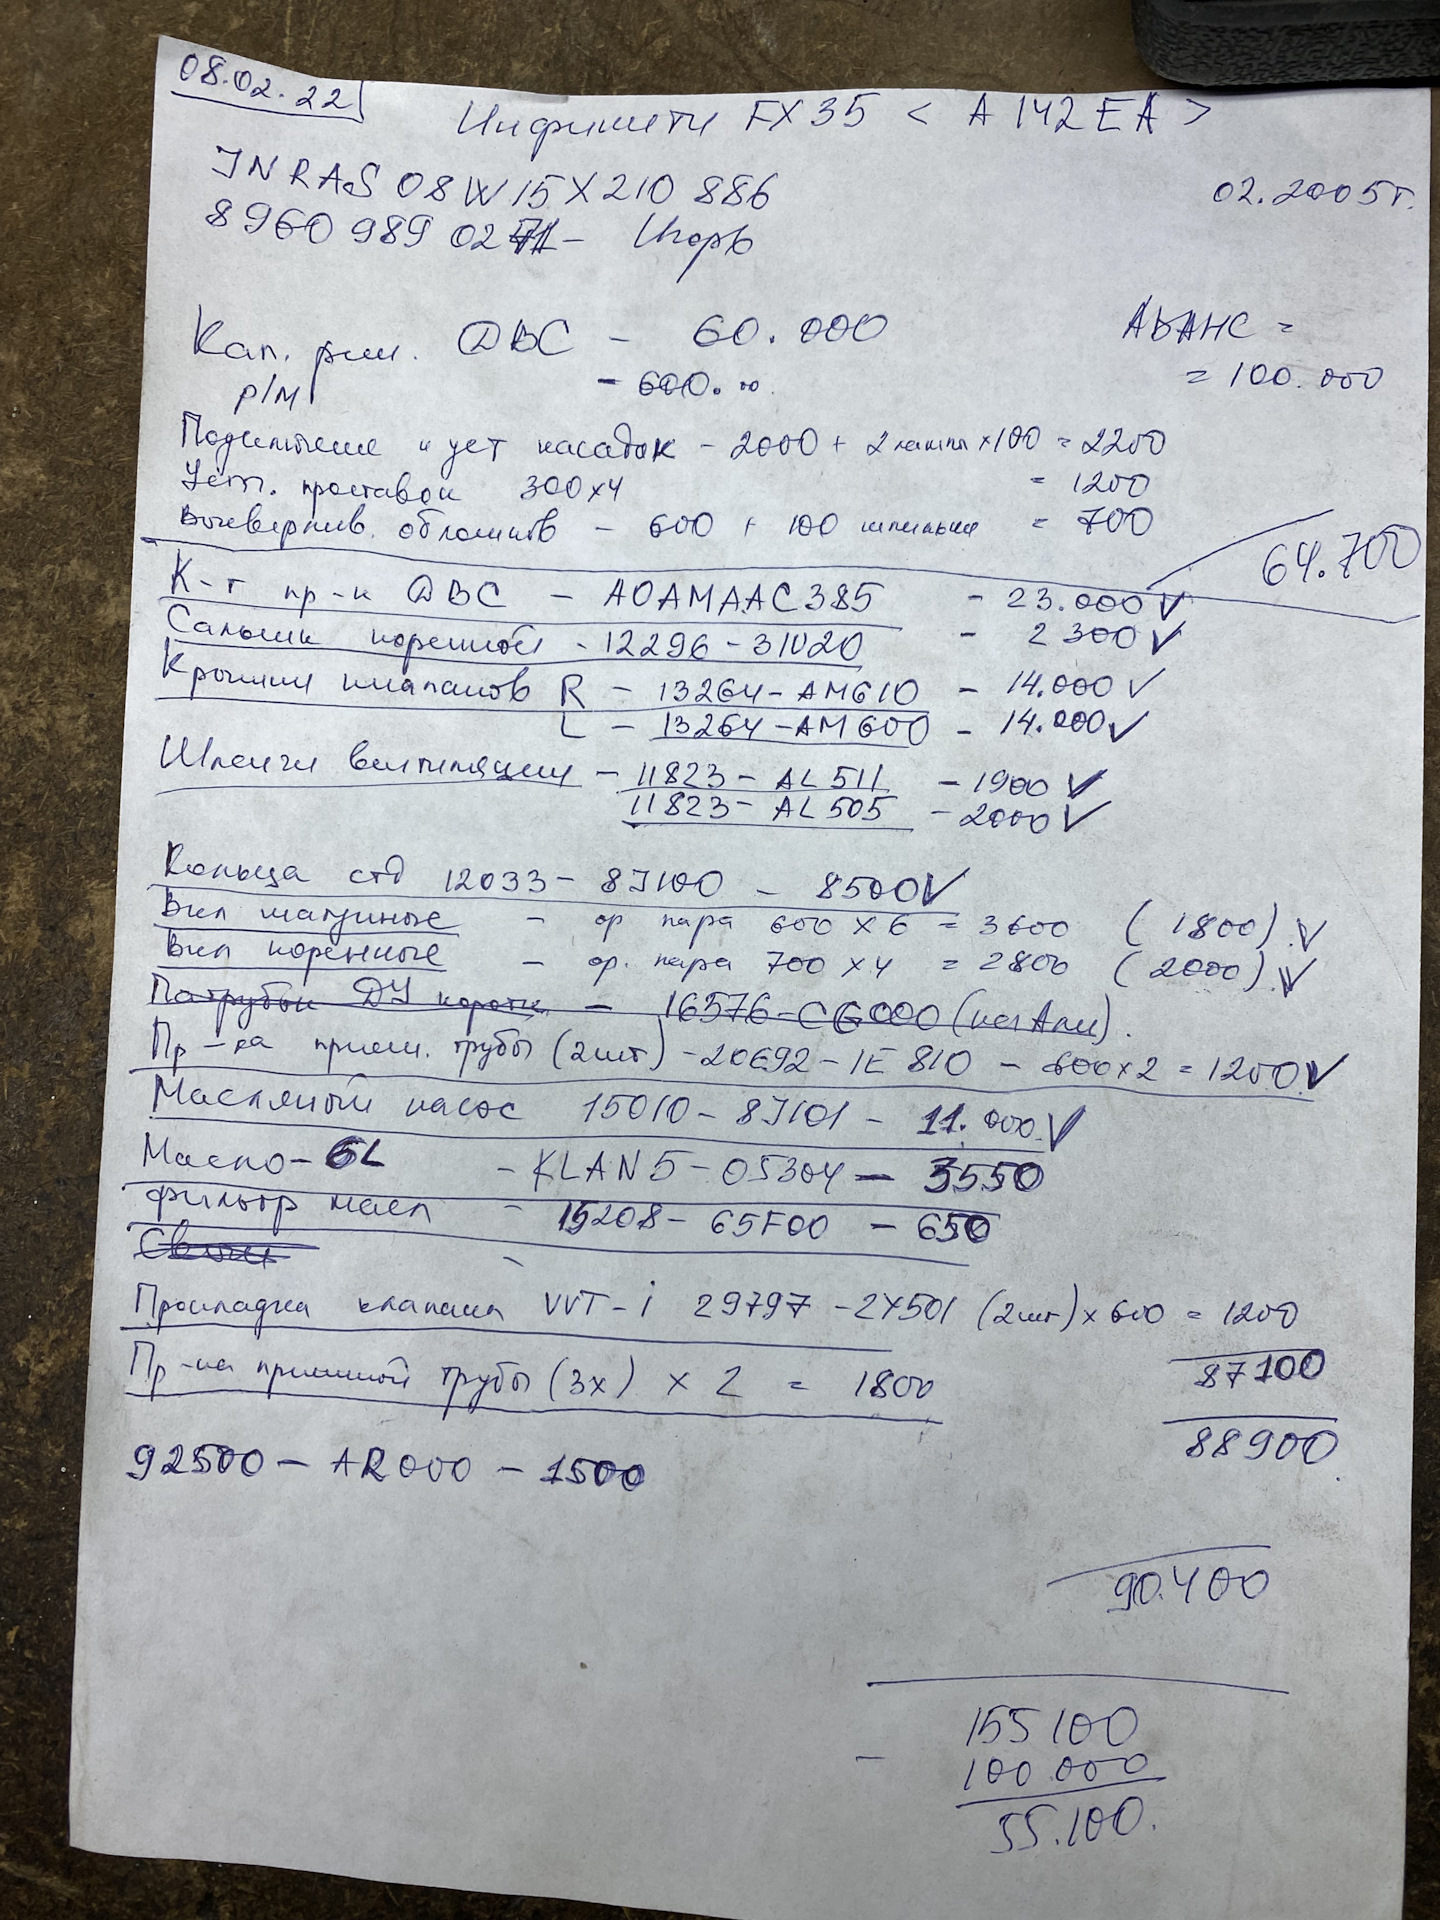 08.02.22
Инфинити FX35 < A142EA >
JNRAS08W15X210886
02.2005г.
8960 989 02 71 - Игорь
Кап. рем. ДВС - 60.000
АВАНС =
= 100.000
р/м - 600.00
Подключение и уст насадок - 2000 + 2 лампы x100 = 2200
Уст. проставок 300x4 = 1200
Выверлив. обломков - 600 + 100 шпилька = 700
64.700
К-т пр-к ДВС - AOAMAAC385 - 23.000 V
Сальник коренной - 12296-31U20 - 2300 V
Крышки клапанов R - 13264-AM610 - 14.000 V
L - 13264-AM600 - 14.000 V
Шланги вентиляции - 11823-AL511 - 1900 V
11823-AL505 - 2000 V
Кольца стд 12033-8J100 - 8500 V
Вкл шатунные - ор пара 600 x 6 = 3600 (1800) V
Вкл коренные - ор. пара 700 x 4 = 2800 (2000) V
Патрубки ДУ - 16576-CG000
Пр-ка прием. трубы (2шт) - 20692-1E810 - 600x2 = 1200 V
Масляный насос 15010-8J101 - 11.000 V
Масло - 6L - KLAN5-05304 - 3550
Фильтр масл - 15208-65F00 - 650
Прокладка клапана VVT-i 23797-2Y501 (2шт) x 600 = 1200
87100
Пр-ка приемной трубы (3х) x 2 = 1800
88900
92500-AR000 - 1500
90.400
155100
- 100.000
55.100.